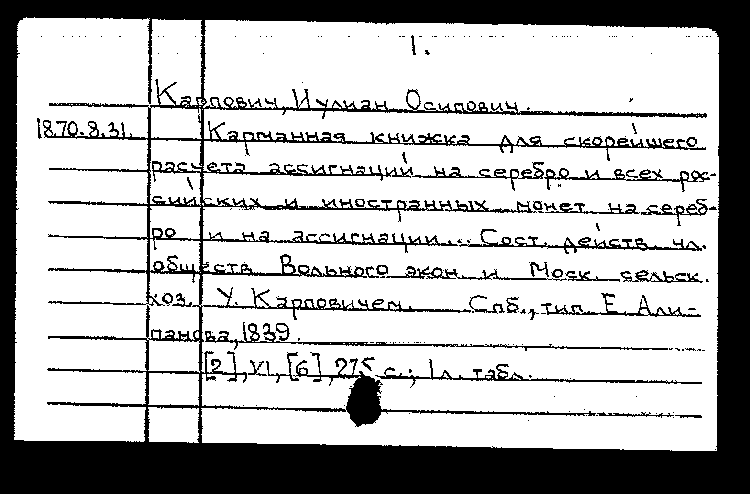 1.
Карпович, Иулиан Осипович.
1870.8.31. Карманная книжка для скорейшего
расчета ассигнаций на серебро и всех рос-
сийских и иностранных монет на сереб-
ро и на ассигнации... Сост. действ. чл.
обществ Вольного экон. и Моск. сельск.
хоз. У. Карповичем. Спб., тип. Е. Али-
панова, 1839.
[2], VI, [6], 275 с.; 1 л. табл.